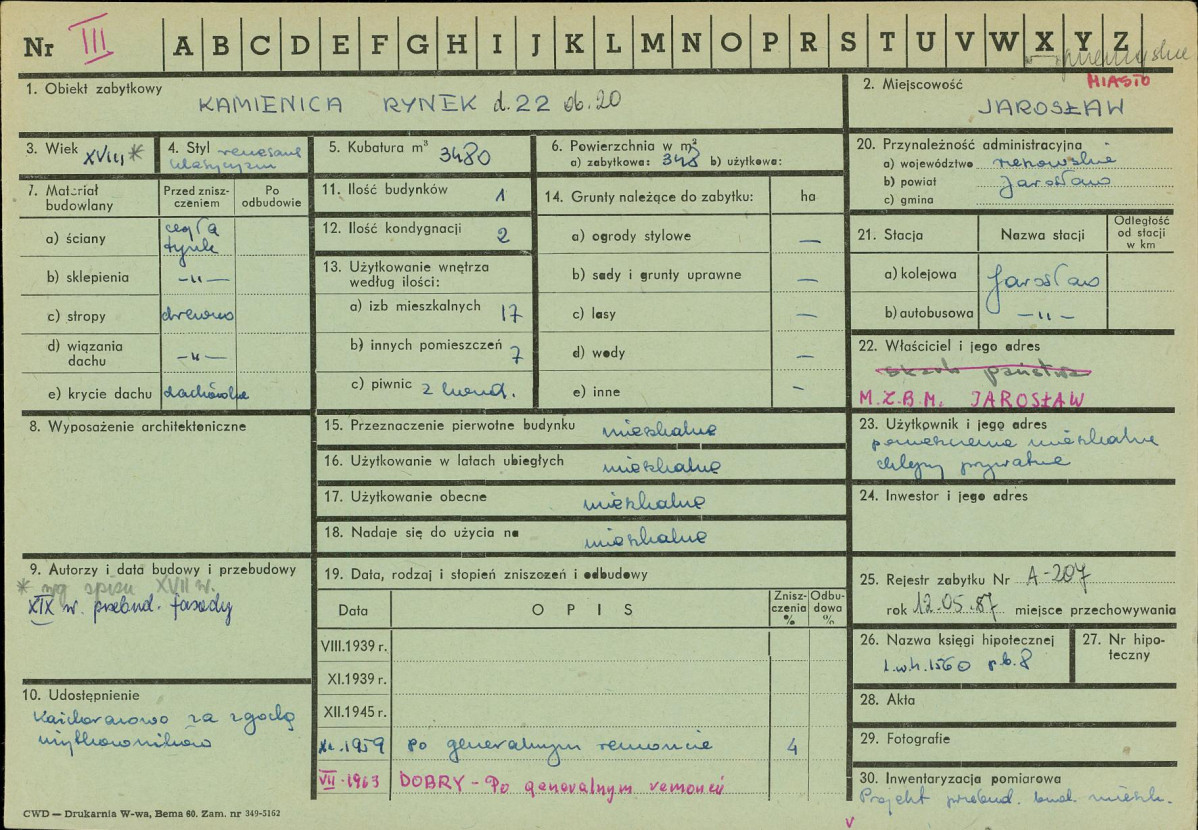 Nr III A B C D E F G H I J K L M N O P R S T U V W X Y Z
przemyskie
1. Obiekt zabytkowy
KAMIENICA RYNEK d. 22 ob. 20
2. Miejscowość
MIASTO
JAROSŁAW
3. Wiek XVIII *
4. Styl renesans
klasycyzm
5. Kubatura m³ 3480
6. Powierzchnia w m²
a) zabytkowa: 348 b) użytkowa:
20. Przynależność administracyjna
a) województwo rzeszowskie
b) powiat Jarosław
c) gmina
7. Materiał budowlany
Przed zniszczeniem
Po odbudowie
a) ściany cegła tynk
b) sklepienia —„—
c) stropy drewno
d) wiązania dachu —„—
e) krycie dachu dachówka
11. Ilość budynków 1
12. Ilość kondygnacji 2
13. Użytkowanie wnętrza
według ilości:
a) izb mieszkalnych 17
b) innych pomieszczeń 7
c) piwnic 2 kond.
14. Grunty należące do zabytku: ha
a) ogrody stylowe —
b) sady i grunty uprawne —
c) lasy —
d) wody —
e) inne —
21. Stacja
Nazwa stacji
Odległość od stacji w km
a) kolejowa Jarosław
b) autobusowa —„—
22. Właściciel i jego adres
skarb państwa
M.Z.B.M. JAROSŁAW
8. Wyposażenie architektoniczne
15. Przeznaczenie pierwotne budynku mieszkalne
16. Użytkowanie w latach ubiegłych mieszkalne
17. Użytkowanie obecne mieszkalne
18. Nadaje się do użycia na mieszkalne
23. Użytkownik i jego adres
pomieszczenia mieszkalne
sklepy prywatne
24. Inwestor i jego adres
9. Autorzy i data budowy i przebudowy
* wg spisu XVII w.
XIX w. przebud. fasady
10. Udostępnienie
Każdorazowo za zgodą
użytkowników
19. Data, rodzaj i stopień zniszczeń i odbudowy
Data
OPIS
Zniszczenia %
Odbudowa %
VIII.1939 r.
XI.1939 r.
XII.1945 r.
XI.1959 po generalnym remoncie 4
VII.1963 DOBRY - Po generalnym remoncie
25. Rejestr zabytku Nr A-207
rok 12.05.87 miejsce przechowywania
26. Nazwa księgi hipotecznej
l.w.h. 1560 p.b. 8
27. Nr hipoteczny
28. Akta
29. Fotografie
30. Inwentaryzacja pomiarowa
Projekt przebud. bud. mieszk.
v
CWD — Drukarnia W-wa, Bema 60. Zam. nr 349-5162